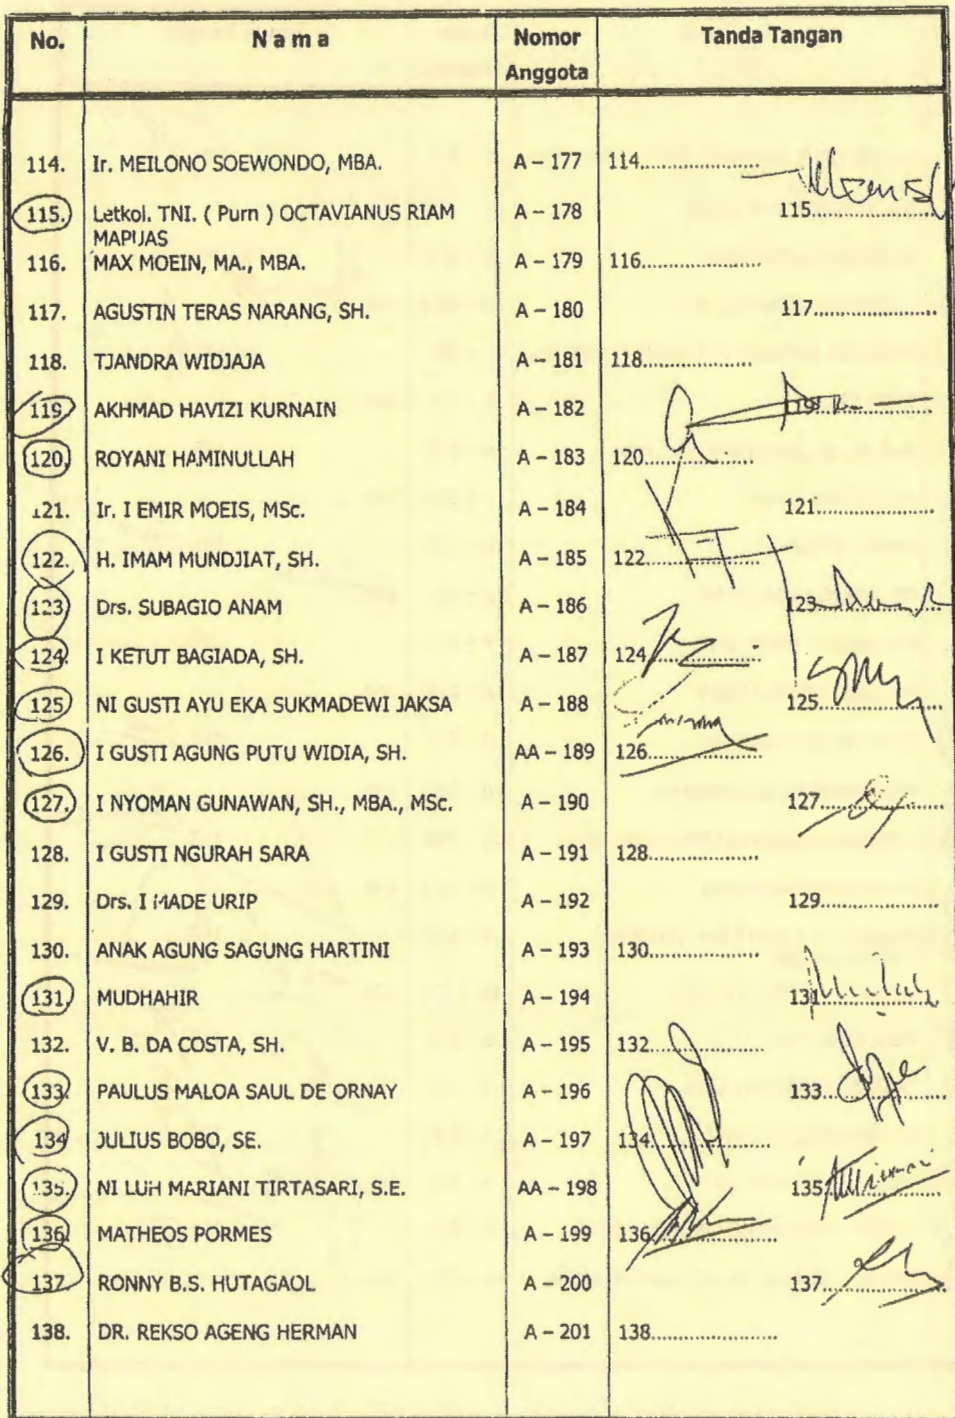 No. Nama Nomor Anggota Tanda Tangan
114. Ir. MEILONO SOEWONDO, MBA. A – 177 114....................
115. Letkol. TNI. ( Purn ) OCTAVIANUS RIAM A – 178 115....................
MAPUAS
116. MAX MOEIN, MA., MBA. A – 179 116....................
117. AGUSTIN TERAS NARANG, SH. A – 180 117....................
118. TJANDRA WIDJAJA A – 181 118....................
119. AKHMAD HAVIZI KURNAIN A – 182 119....................
120. ROYANI HAMINULLAH A – 183 120....................
121. Ir. I EMIR MOEIS, MSc. A – 184 121....................
122. H. IMAM MUNDJIAT, SH. A – 185 122....................
123. Drs. SUBAGIO ANAM A – 186 123....................
124. I KETUT BAGIADA, SH. A – 187 124....................
125. NI GUSTI AYU EKA SUKMADEWI JAKSA A – 188 125....................
126. I GUSTI AGUNG PUTU WIDIA, SH. AA – 189 126....................
127. I NYOMAN GUNAWAN, SH., MBA., MSc. A – 190 127....................
128. I GUSTI NGURAH SARA A – 191 128....................
129. Drs. I MADE URIP A – 192 129....................
130. ANAK AGUNG SAGUNG HARTINI A – 193 130....................
131. MUDHAHIR A – 194 131....................
132. V. B. DA COSTA, SH. A – 195 132....................
133. PAULUS MALOA SAUL DE ORNAY A – 196 133....................
134. JULIUS BOBO, SE. A – 197 134....................
135. NI LUH MARIANI TIRTASARI, S.E. AA – 198 135....................
136. MATHEOS PORMES A – 199 136....................
137. RONNY B.S. HUTAGAOL A – 200 137....................
138. DR. REKSO AGENG HERMAN A – 201 138....................